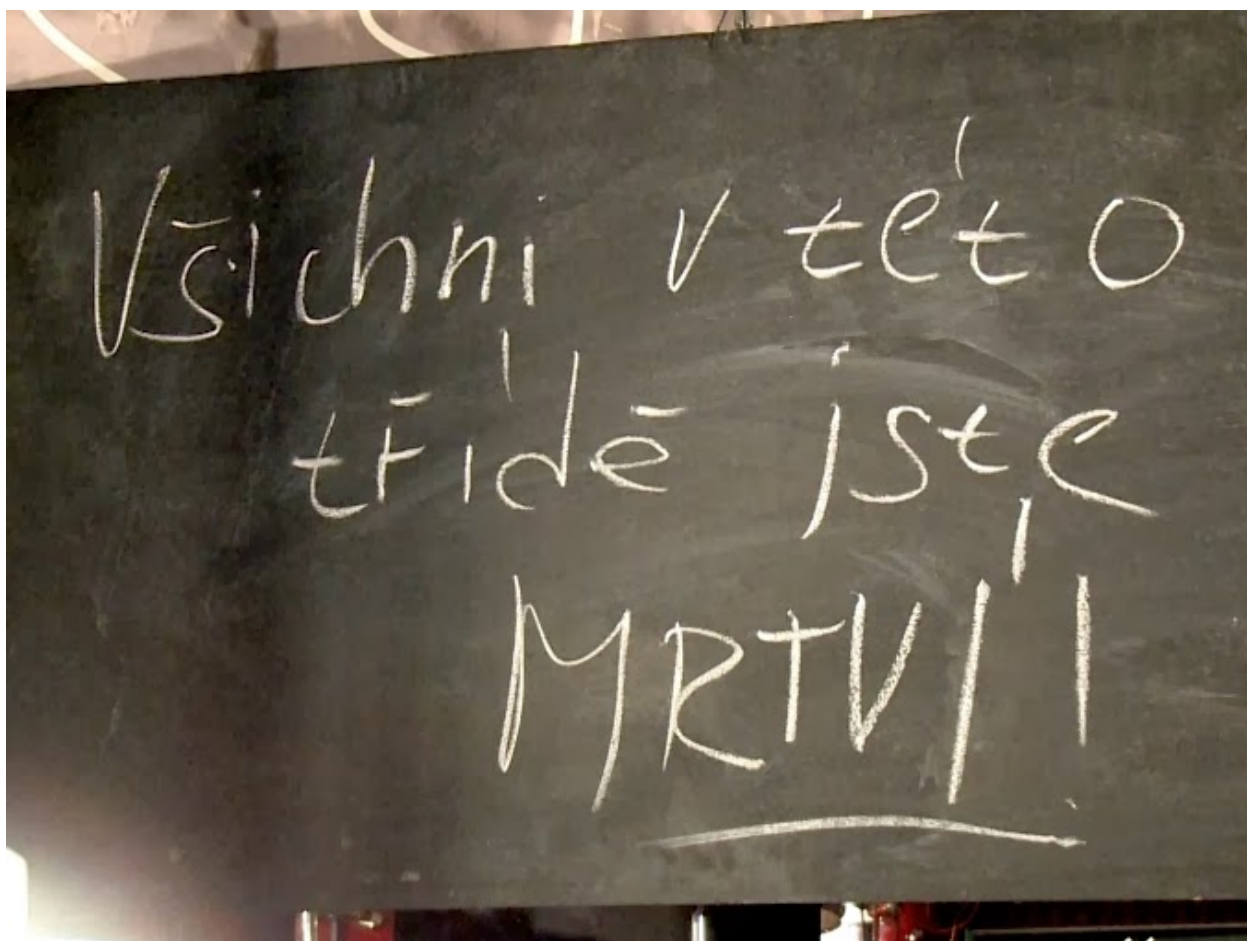 Všichni v této
třídě jste
MRTVÍ!